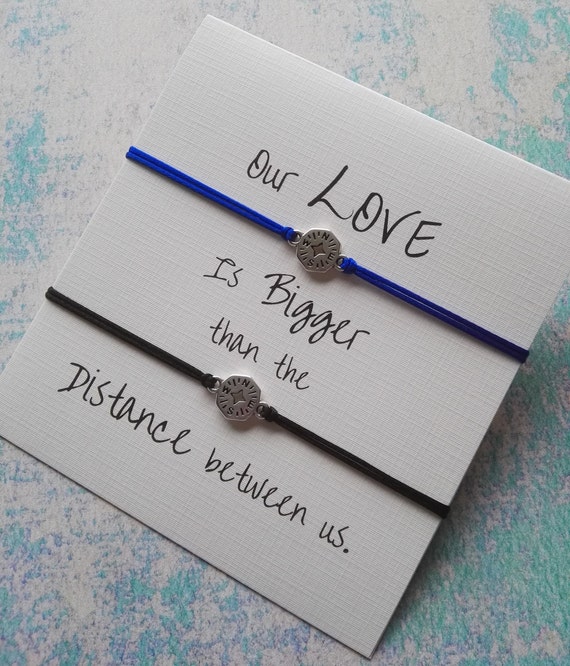 Our LOVE
N
W E
S
Is Bigger
than the
N
W E
S
Distance between us.